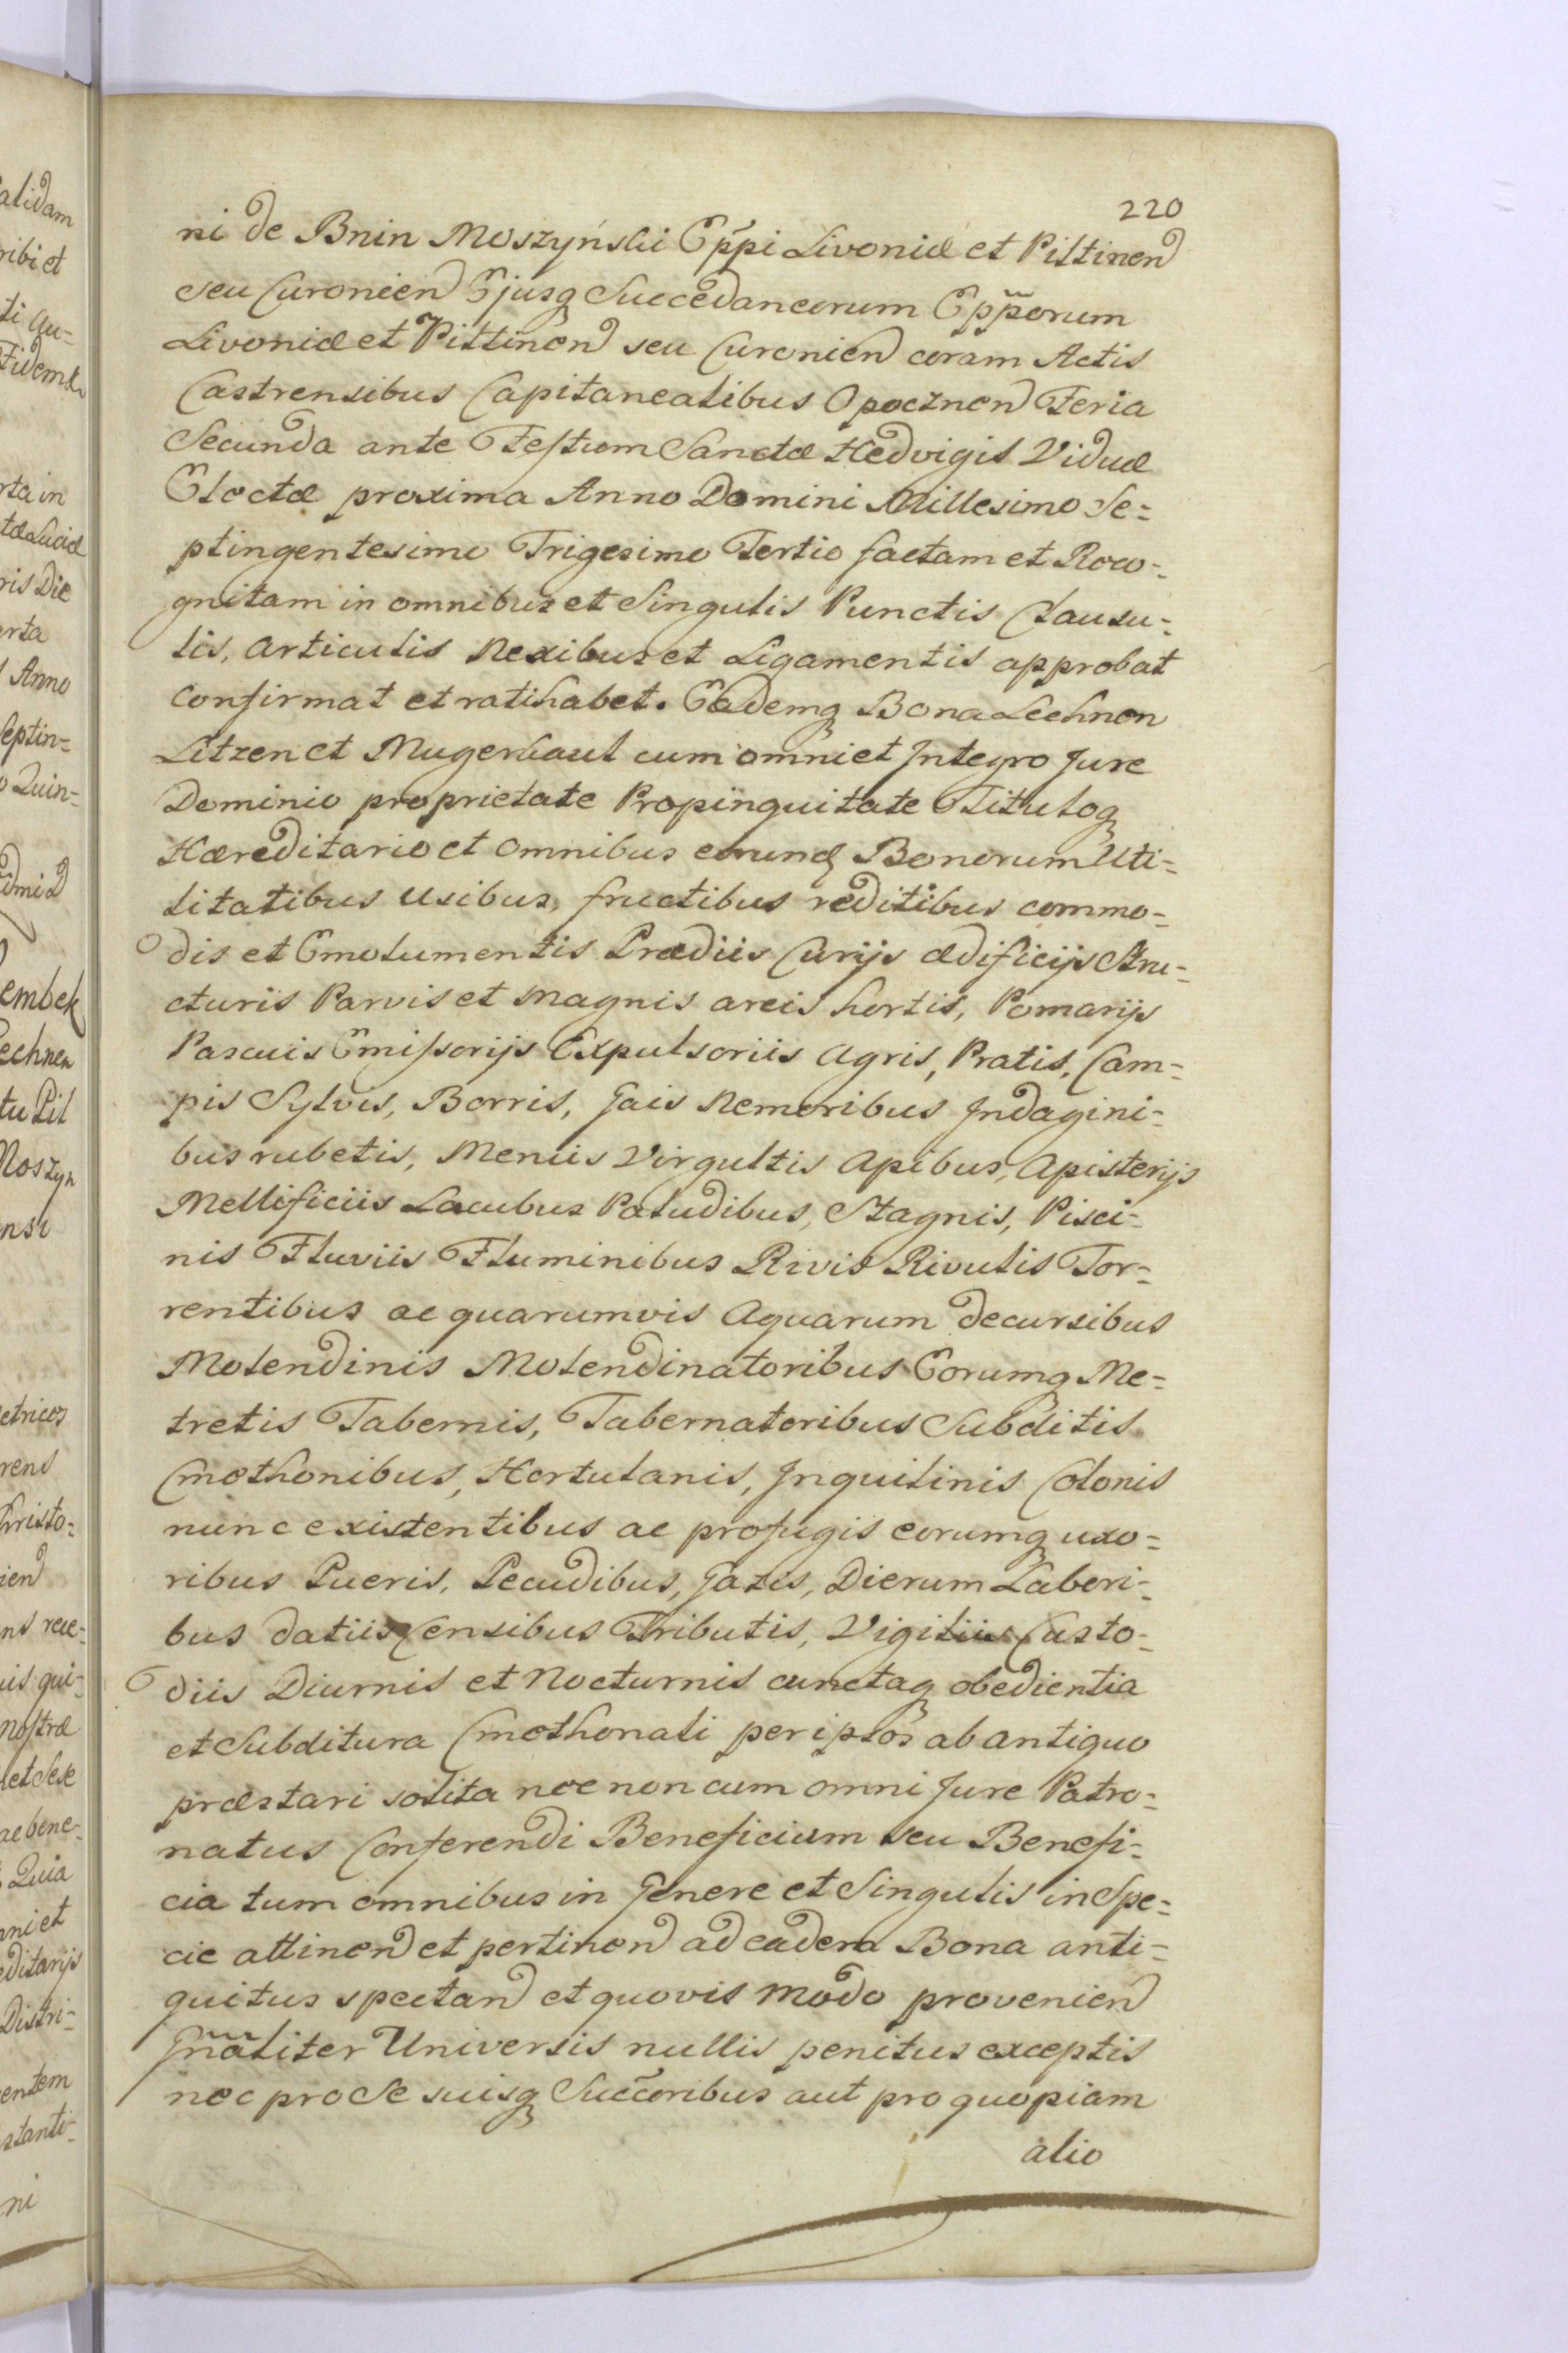 220
ni de Bnin Moszyński Eppi Livoniæ et Piltinen
seu Curonien Ejusq Succedaneorum Epporum
Livoniæ et Piltinen seu Curonien coram Actis
Castrensibus Capitanealibus Opocznen Feria
Secunda ante Festum Sanctæ Hedvigis Viduæ
Electæ proxima Anno Domini Millesimo Se=
ptingentesimo Trigesimo Tertio factam et Reco=
gnitam in omnibus et Singulis Punctis Clausu=
lis, articulis Nexibus et Ligamentis approbat
confirmat et ratihabet. Eademq Bona Lechnen
Litzen et Mugerhaul cum omni et Integro Jure
Dominio proprietate Propinquitate Tituloq
Hæreditario et omnibus eorund Bonorum Uti=
litatibus usibus, fructibus reditibus commo=
dis et Emolumentis Prædiis Curijs ædificijs Stru=
cturis Parvis et magnis areis hortis, Pomarijs
Pascuis Emissorijs Expulsoriis agris, Pratis, Cam=
pis Sylvis, Borris, Gais Nemoribus Indagini=
bus rubetis, Meniis Virgultis apibus, apisterijs
Mellificiis Lacubus Paludibus, Stagnis, Pisci=
nis Fluviis Fluminibus Rivis Rivulis Tor=
rentibus ac quarumvis aquarum decursibus
Molendinis Molendinatoribus Eorumq Me=
tretis Tabernis, Tabernatoribus Subditis
Cmethonibus, Hortulanis, Inquilinis Colonis
nunc existentibus ac profugis eorumq uxo=
ribus Pueris, Pecudibus, Gazis, Dierum Labori=
bus datiis Censibus Tributis, Vigiliis Custo=
diis Diurnis et Nocturnis cunctaq obedientia
et Subditura Cmethonali per ipsos ab antiquo
præstari solita nec non cum omni Jure Patro=
natus Conferendi Beneficium seu Benefi=
cia tum omnibus in Genere et Singulis in Spe=
cie attinen et pertinen ad eadem Bona anti=
quitus spectan et quovis modo provenien
Gnāliter Universis nullis penitus exceptis
nec pro Se suisq Succoribus aut pro quopiam
alio